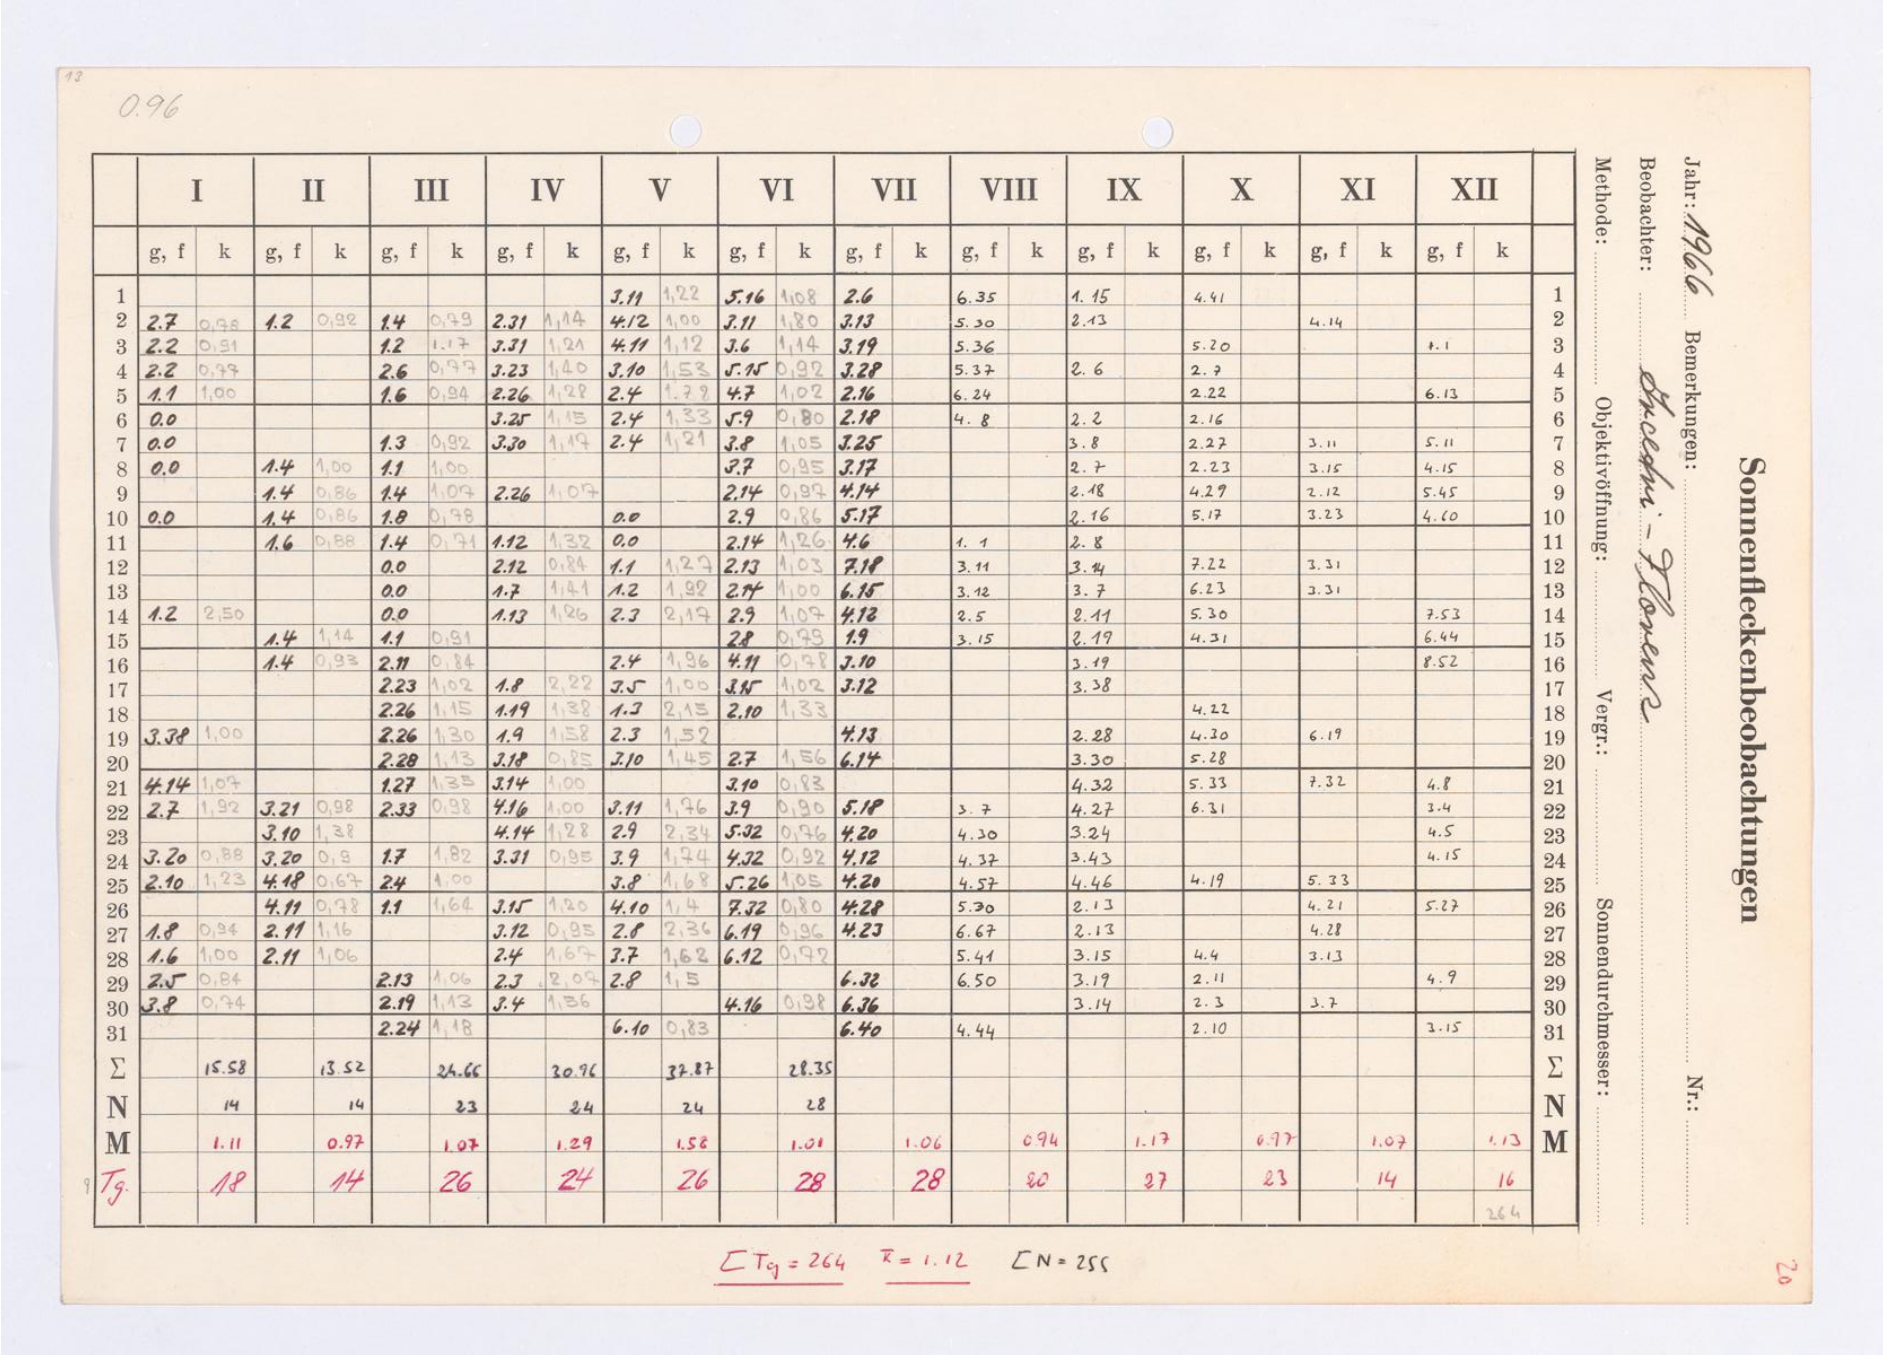 13
0.96
Sonnenfleckenbeobachtungen
Jahr: 1966 Bemerkungen: Nr.:
Beobachter: Arcetri - Florenz
Methode: Objektivöffnung: Vergr.: Sonnendurchmesser:
I II III IV V VI VII VIII IX X XI XII
g, f k g, f k g, f k g, f k g, f k g, f k g, f k g, f k g, f k g, f k g, f k g, f k
1 3.11 1,22 5.16 1,08 2.6 6.35 1.15 4.41 1
2 2.7 0,78 1.2 0,92 1.4 0,79 2.31 1,14 4.12 1,00 3.11 1,80 3.13 5.30 2.13 4.14 2
3 2.2 0,91 1.2 1.17 3.31 1,21 4.11 1,12 3.6 1,14 3.19 5.36 5.20 1.1 3
4 2.2 0,77 2.6 0,77 3.23 1,40 3.10 1,53 5.15 0,92 3.28 5.37 2.6 2.7 4
5 1.1 1,00 1.6 0,94 2.26 1,28 2.4 1.78 4.7 1,02 2.16 6.24 2.22 6.13 5
6 0.0 3.25 1,15 2.4 1,33 5.9 0,80 2.18 4.8 2.2 2.16 6
7 0.0 1.3 0,92 3.30 1,17 2.4 1,21 3.8 1,05 3.25 3.8 2.27 3.11 5.11 7
8 0.0 1.4 1,00 1.1 1,00 3.7 0,95 3.17 2.7 2.23 3.15 4.15 8
9 1.4 0,86 1.4 1,07 2.26 1,07 2.14 0,97 4.14 2.18 4.29 2.12 5.45 9
10 0.0 1.4 0,86 1.8 0,78 0.0 2.9 0,86 5.17 2.16 5.17 3.23 4.60 10
11 1.6 0,88 1.4 0,71 1.12 1,32 0.0 2.14 1,26 4.6 1.1 2.8 11
12 0.0 2.12 0,84 1.1 1,27 2.13 1,03 7.18 3.11 3.14 7.22 3.31 12
13 0.0 1.7 1,41 1.2 1,92 2.14 1,00 6.15 3.12 3.7 6.23 3.31 13
14 1.2 2,50 0.0 1.13 1,26 2.3 2,17 2.9 1,07 4.12 2.5 2.11 5.30 7.53 14
15 1.4 1,14 1.1 0,91 2.8 0,79 1.9 3.15 2.19 4.31 6.44 15
16 1.4 0,93 2.11 0,84 2.4 1,96 4.11 0,78 3.10 3.19 8.52 16
17 2.23 1,02 1.8 2,22 3.5 1,00 3.15 1,02 3.12 3.38 17
18 2.26 1,15 1.19 1,38 1.3 2,15 2.10 1,33 4.22 18
19 3.38 1,00 2.26 1,30 1.9 1,58 2.3 1,52 4.13 2.28 4.30 6.19 19
20 2.28 1,13 3.18 0,85 3.10 1,45 2.7 1,56 6.14 3.30 5.28 20
21 4.14 1,07 1.27 1,35 3.14 1,00 3.10 0,83 4.32 5.33 7.32 4.8 21
22 2.7 1,92 3.21 0,98 2.33 0,98 4.16 1,00 3.11 1,76 3.9 0,90 5.18 3.7 4.27 6.31 3.4 22
23 3.10 1,38 4.14 1,28 2.9 2,34 5.32 0,76 4.20 4.30 3.24 4.5 23
24 3.20 0,88 3.20 0,9 1.7 1,82 3.31 0,95 3.9 1,74 4.32 0,92 4.12 4.37 3.43 4.15 24
25 2.10 1,23 4.18 0,67 2.4 1,00 3.8 1,68 5.26 1,05 4.20 4.57 4.46 4.19 5.33 25
26 4.11 0,78 1.1 1,64 3.15 1,20 4.10 1,4 7.32 0,80 4.28 5.30 2.13 4.21 5.27 26
27 1.8 0,94 2.11 1,16 3.12 0,95 2.8 2,36 6.19 0,96 4.23 6.67 2.13 4.28 27
28 1.6 1,00 2.11 1,06 2.4 1,67 3.7 1,62 6.12 0,72 5.41 3.15 4.4 3.13 28
29 2.5 0,84 2.13 1,06 2.3 2,07 2.8 1,5 6.32 6.50 3.19 2.11 4.9 29
30 3.8 0,74 2.19 1,13 3.4 1,36 4.16 0,98 6.36 3.14 2.3 3.7 30
31 2.24 1,18 6.10 0,83 6.40 4.44 2.10 3.15 31
Σ 15.58 13.52 24.66 30.96 37.87 28.35 Σ
N 14 14 23 24 24 28 N
M 1.11 0.97 1.07 1.29 1.58 1.01 1.06 0.94 1.17 0.97 1.07 1.13 M
Tg. 18 14 26 24 26 28 28 20 27 23 14 16
264
Σ Tg = 264 k̄ = 1.12 Σ N = 255
20